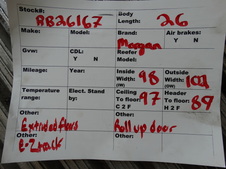 Stock#: Body
AB26167 Length: 26
Make: Model: Brand: Air brakes:
Morgan Y N
Gvw: CDL: Reefer
Y N Model:
Mileage: Year: Inside Outside
Width: 98 Width: 101
(IW) (OW)
Temperature Elect. Stand Ceiling 97 Header
range: by: To floor: to floor: 89
C 2 F H 2 F
Other: Other:
Extruded floors Roll up door
Other: Other:
E-Z track